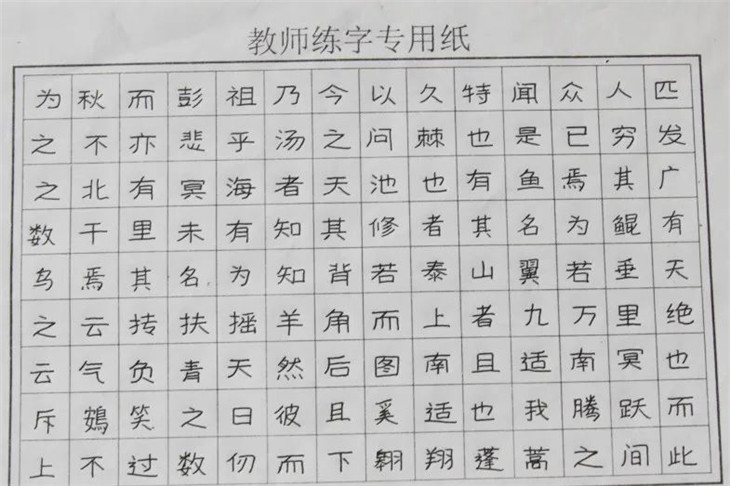 教师练字专用纸
为秋而彭祖乃今以久特闻众人匹
之不亦悲乎汤之问棘也是已穷发
之北有冥海者天池也有鱼焉其广
数千里未有知其修者其名为鲲有
鸟焉其名为知背若泰山翼若垂天
之云抟扶摇羊角而上者九万里绝
云气负青天然后图南且适南冥也
斥鴳笑之日彼且奚适也我腾跃而
上不过数仞而下翱翔蓬蒿之间此